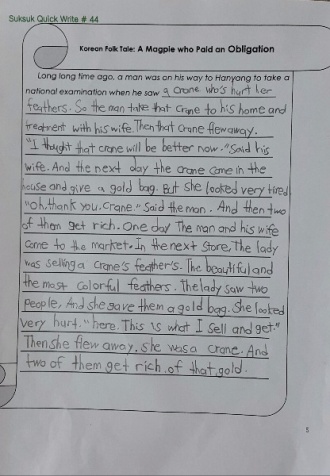 Suksuk Quick Write # 44
Korean Folk Tale: A Magpie who Paid an Obligation
Long long time ago, a man was on his way to Hanyang to take a
national examination when he saw a crane who's hurt her
feathers. So the man take that crane to his home and
treatment with his wife. Then that crane flew away.
"I thought that crane will be better now." Said his
wife. And the next day the crane came in the
house and give a gold bag. But she looked very tired
"Oh, thank you, crane." Said the man. And then two
of them get rich. One day The man and his wife
came to the market. In the next store, The lady
was selling a crane's feather's. The beautiful and
the most colorful feathers. The lady saw two
people. And she gave them a gold bag. She looked
very hurt. "here. This is what I sell and get."
Then she flew away. She was a crane. And
two of them get rich, of that gold.
5